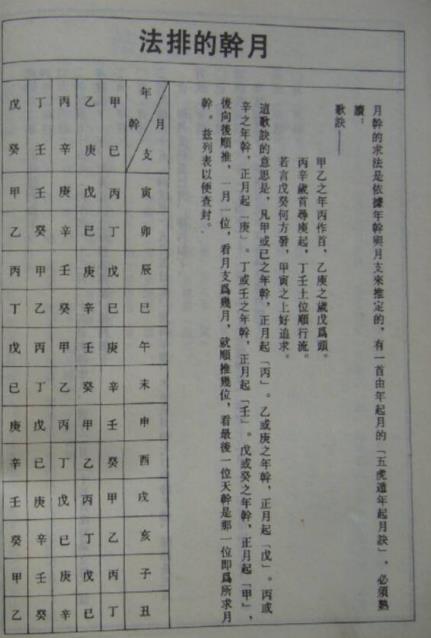 月幹的排法
月幹的求法是依據年幹與月支來推定的，有一首由年起月的「五虎遁年起月訣」，必須熟
讀。
歌訣——
甲乙之年丙作首，乙庚之歲戊爲頭。
丙辛歲首尋庚起，丁壬壬位順行流。
若言戊癸何方發，甲寅之上好追求。
這歌訣的意思是，凡甲或已之年幹，正月起「丙」。乙或庚之年幹，正月起「戊」。丙或
辛之年幹，正月起「庚」。丁或壬之年幹，正月起「壬」。戊或癸之年幹，正月起「甲」，
後向後順推，一月一位，看月支爲幾月，就順推幾位，看最後一位天幹是那一位即爲所求月
幹。茲列表以便查封。
年幹 月支 寅 卯 辰 巳 午 未 申 酉 戌 亥 子 丑
甲巳 丙 丁 戊 已 庚 辛 壬 癸 甲 乙 丙 丁
乙庚 戊 已 庚 辛 壬 癸 甲 乙 丙 丁 戊 已
丙辛 庚 辛 壬 癸 甲 乙 丙 丁 戊 已 庚 辛
丁壬 壬 癸 甲 乙 丙 丁 戊 已 庚 辛 壬 癸
戊癸 甲 乙 丙 丁 戊 已 庚 辛 壬 癸 甲 乙